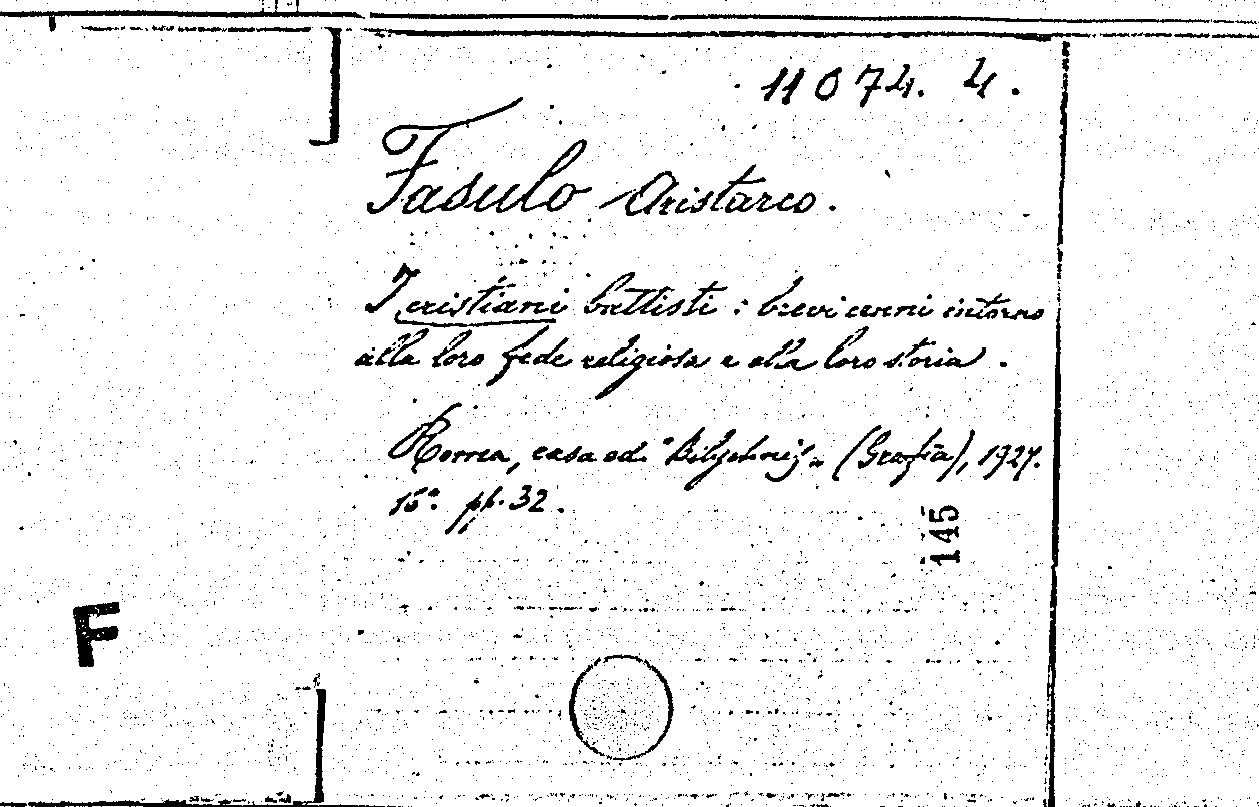 11074. 4.
Fasulo Aristarco.
I cristiani battisti : brevi cenni intorno
alla loro fede religiosa e alla loro storia .
Roma, casa ed. "Bilychnis" (Grafia), 1927.
16°. pp. 32.
145
F